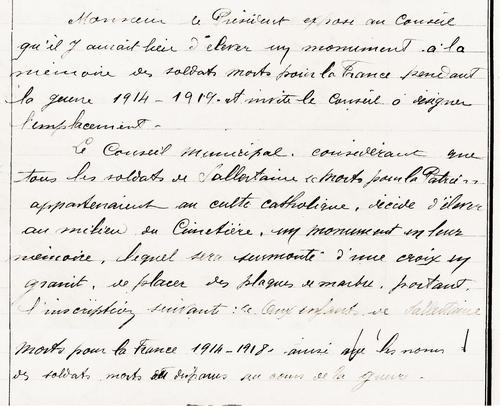 Monsieur le Président expose au Conseil
qu'il y aurait lieu d'élever un monument à la
mémoire des soldats morts pour la France pendant
la guerre 1914-1919. et invite le Conseil à désigner
l'emplacement -
Le Conseil municipal. considérant que
tous les soldats de Sallertaine morts pour la Patrie
appartenaient au culte catholique, décide d'élever
au milieu du Cimetière, un monument en leur
mémoire, lequel sera surmonté d'une croix en
granit, de placer des plaques de marbre, portant
l'inscription suivant : Aux enfants de Sallertaine
morts pour la France 1914-1918. ainsi que les noms
des soldats morts ou disparus au cours de la guerre -